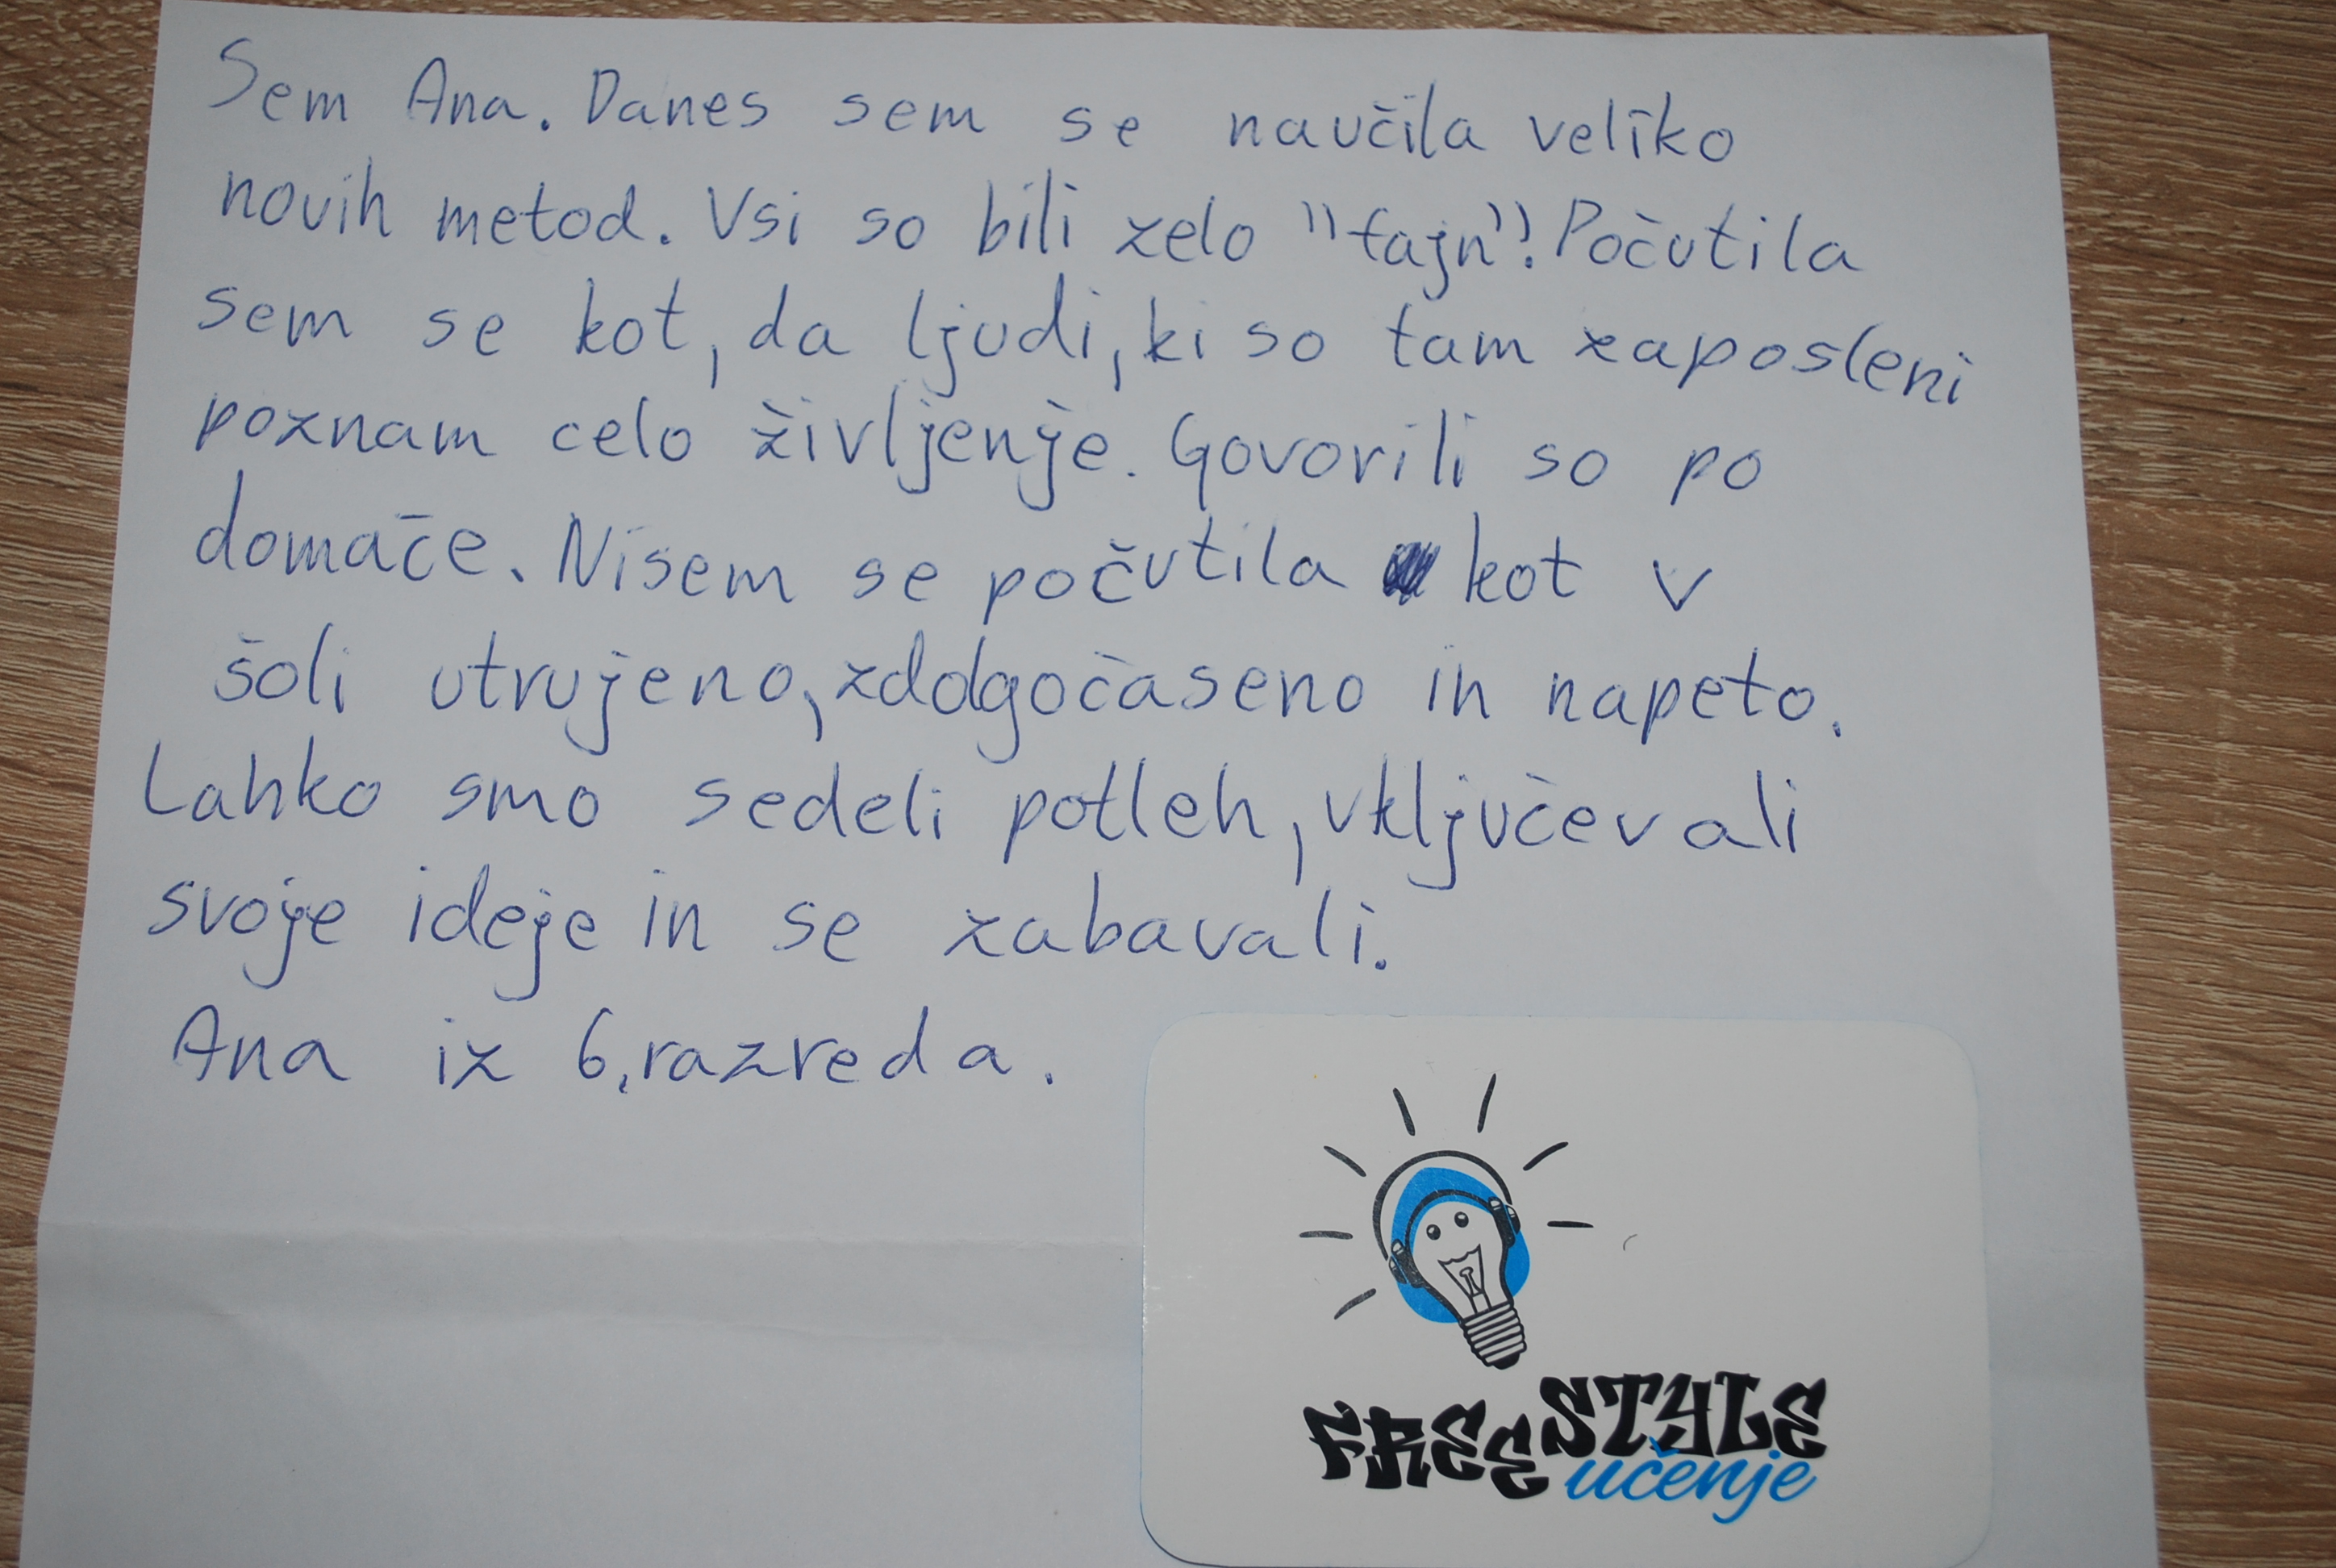 Sem Ana. Danes sem se naučila veliko
novih metod. Vsi so bili zelo "fajn"! Počutila
sem se kot, da ljudi, ki so tam zaposleni
poznam celo življenje. Govorili so po
domače. Nisem se počutila kot v
šoli utrujeno, zdolgočaseno in napeto.
Lahko smo sedeli potleh, vključevali
svoje ideje in se zabavali.
Ana iz 6. razreda.
FREESTYLE
učenje